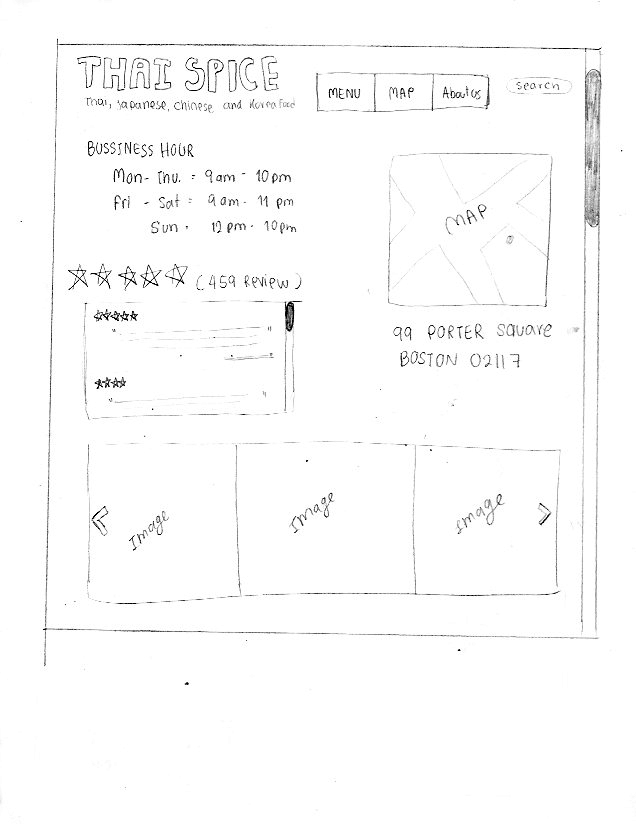 THAI SPICE
Thai, Japanese, Chinese and Korea Food
MENU MAP About Us
Search
BUSSINESS HOUR
Mon - Thu. = 9am - 10pm
Fri - Sat = 9am - 11 pm
Sun = 12 pm - 10pm
MAP
(459 Review)
99 PORTER Square
BOSTON 02117
Image Image Image